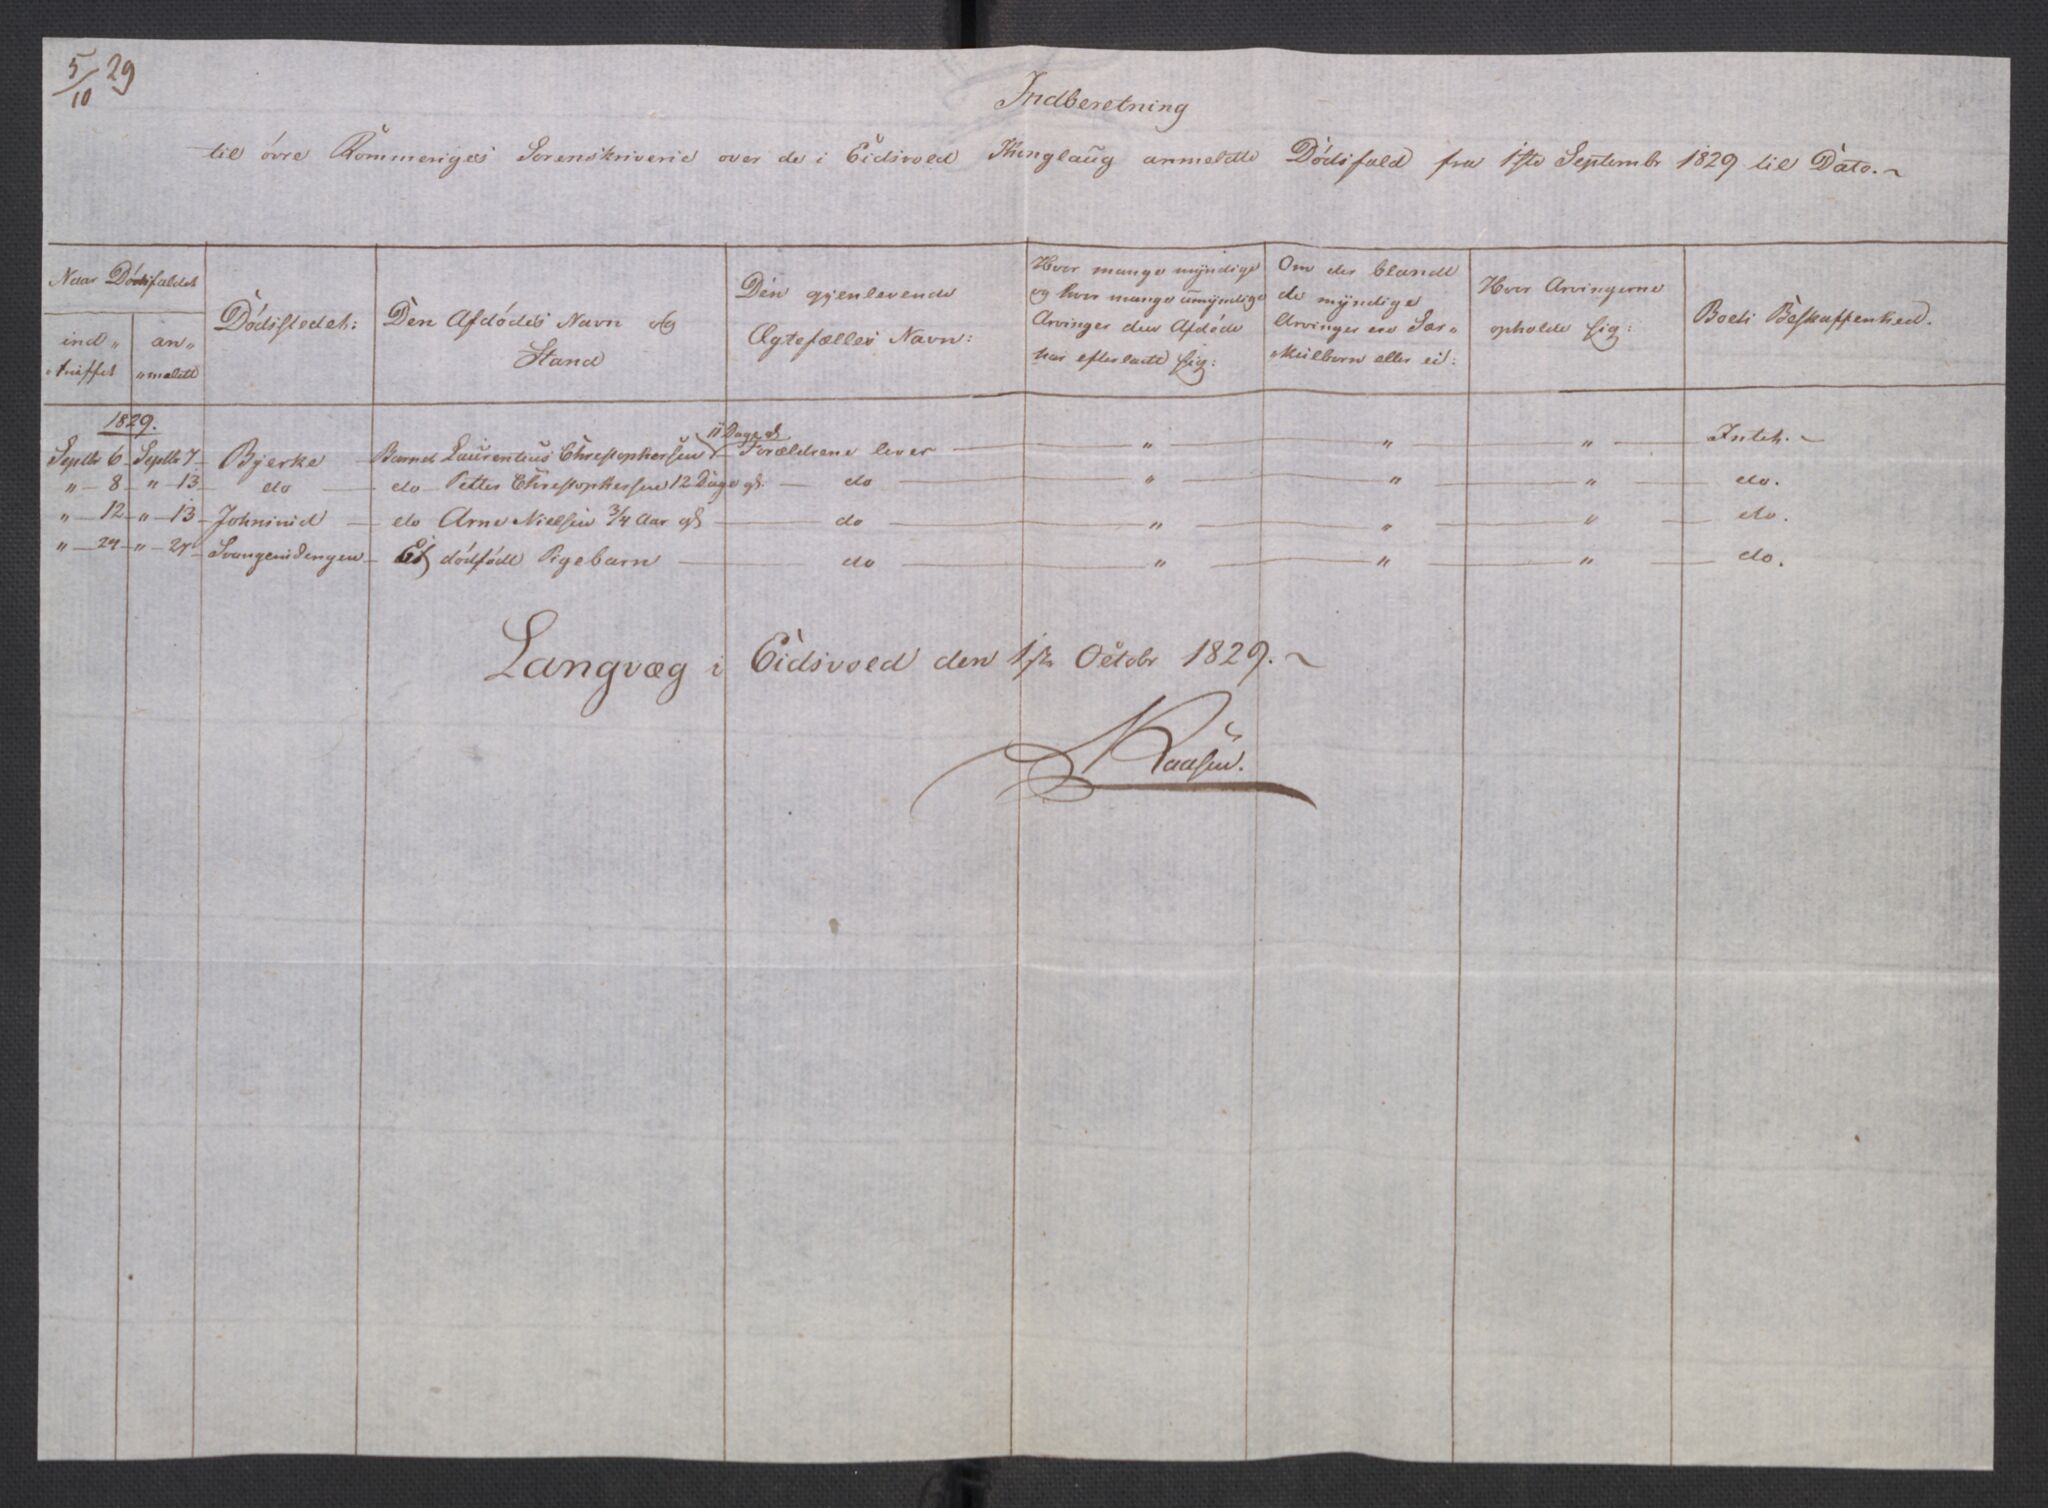 5/10 29
Indberetning
til øvre Rommeriges Sorenskriverie over de i Eidsvold Thinglaug anmeldte Dødsfald fra 1ste Septembr 1829 til Dato.
Naar Dødsfaldet
ind„
„truffet
an„
„meldt
Dødsstedet:
Den Afdødes Navn og
Stand
Den gjenlevende
Ægtefælles Navn:
Hvor mange myndige
og hvor mange umyndige
Arvinger den Afdøde
har efterladt sig:
Om der blandt
de myndige
Arvinger ere Sær„
„kulborn eller ei:
Hvor Arvingerne
opholde sig:
Boets Beskaffenhed.
1829.
Septbr 6 Septbr 7 Bjerke Barnet Laurentius Christophersen 11 Dage gl. Forældrene lever „ „ „ Intet.
„ 8 „ 13 do do Petter Christophersen 12 Dage gl. do „ „ „ do.
„ 12 „ 13 do Arne Nielsen 3/4 Aar gl do „ „ „ do.
„ 24 „ 27 Et dødfødt Pigebarn do „ „ „ do.
Langvæg i Eidsvold den 1ste Octobr 1829.
Kaasen.